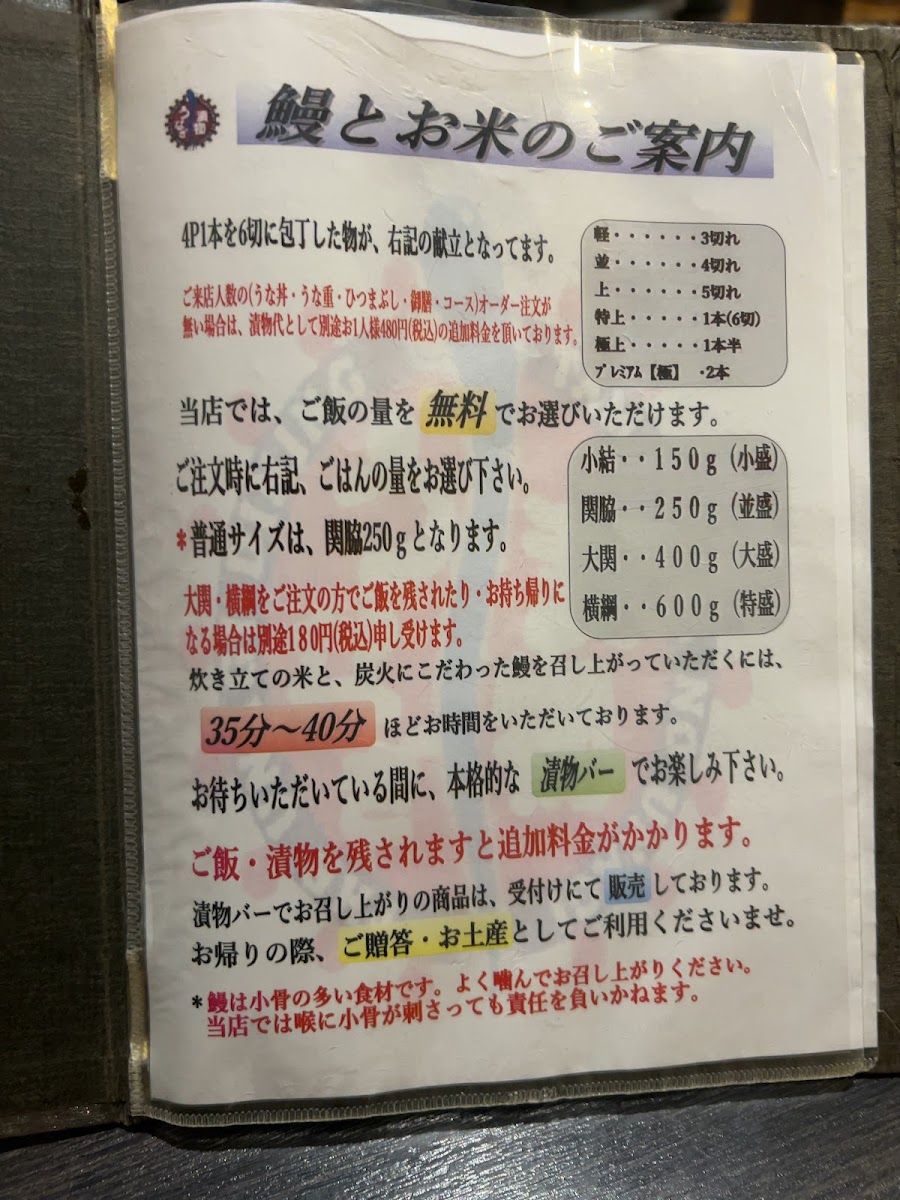 鰻とお米のご案内
4P1本を6切に包丁した物が、右記の献立となってます。
軽・・・・・・3切れ
並・・・・・・4切れ
上・・・・・・5切れ
特上・・・・・1本(6切)
極上・・・・・1本半
プレミアム【極】 ・2本
ご来店人数の(うな丼・うな重・ひつまぶし・御膳・コース)オーダー注文が
無い場合は、漬物代として別途お1人様480円(税込)の追加料金を頂いております。
当店では、ご飯の量を 無料 でお選びいただけます。
ご注文時に右記、ごはんの量をお選び下さい。
*普通サイズは、関脇250gとなります。
小結・・150g(小盛)
関脇・・250g(並盛)
大関・・400g(大盛)
横綱・・600g(特盛)
大関・横綱をご注文の方でご飯を残されたり・お持ち帰りに
なる場合は別途180円(税込)申し受けます。
炊き立ての米と、炭火にこだわった鰻を召し上がっていただくには、
35分~40分 ほどお時間をいただいております。
お待ちいただいている間に、本格的な 漬物バー でお楽しみ下さい。
ご飯・漬物を残されますと追加料金がかかります。
漬物バーでお召し上がりの商品は、受付けにて 販売 しております。
お帰りの際、ご贈答・お土産としてご利用くださいませ。
*鰻は小骨の多い食材です。よく噛んでお召し上がりください。
当店では喉に小骨が刺さっても責任を負いかねます。